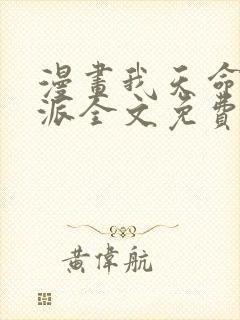 漫畫我天命
派全文免費
黃偉航